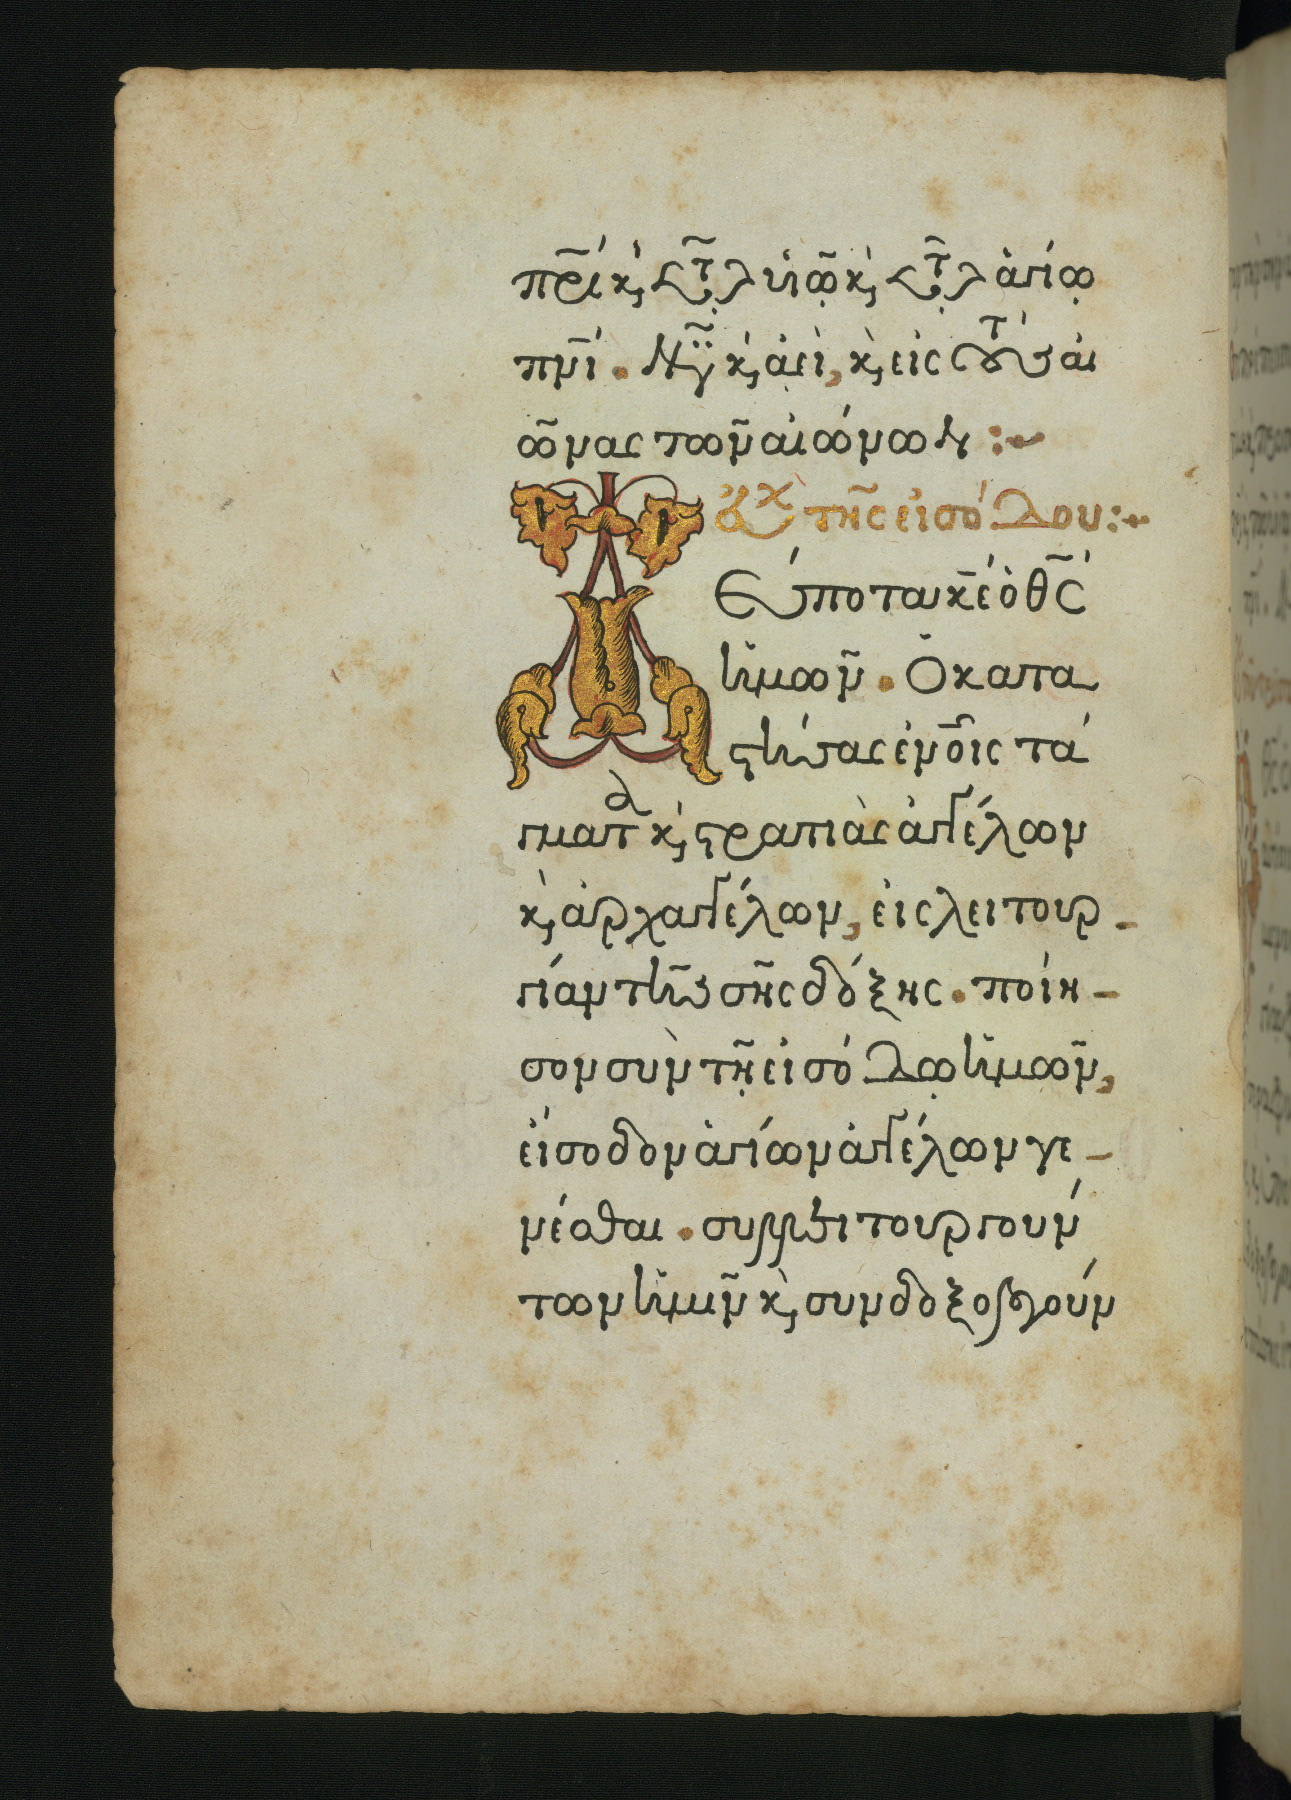 πρ̅ὶ κ̀ τῶ υἱῶ κ̀ τῶ ἁγίω
πν̅ι. Νῦν κ̀ ἀεὶ, κ̀ εἰς τοὺς αἰ
ῶνας τῶν αἰώνων :~
Εὐχ τῆς εἰσόδου :~
Δέσποτα κ̅ε ὁ θ̅ς
ἡμῶν. Ὁ κατα
στήσας ἐν ο̅ις τά
γματ κ̀ στρατιὰς ἀγγέλων
κ̀ ἀρχαγγέλων, εἰς λειτουρ-
γίαν τῆς σῆς δόξης. ποίη-
σον σὺν τῇ εἰσόδω ἡμῶν,
εἴσοδον ἁγίων ἀγγέλων γε-
νέσθαι. συλλειτουργούν
των ἡμῖν κ̀ συνδοξολογούν